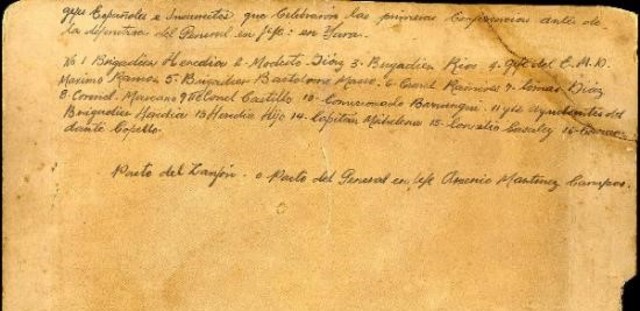 gefes Españoles e Insurrectos que Celebraron las primeras Conferencias antes de
la difinitiva del General en Jefe: en Yara.
No 1 Brigadier Heredia 2- Modesto Diaz 3- Brigadier Rios 4- gefe del E.M.D.
Maximo Ramos 5- Brigadier Bartolome Maso. 6- Ramires 7- Diaz
8- Coronel Marcano 9 Castillo 10- Comisionado 11 y 12 Ayudantes del
Brigadier Heredia 13 Heredia Hijo 14- Capitán 15- 16- Coman-
dante Copello.
Pacto del Zanjón. o Pacto del General en Jefe Arsenio Martinez Campos.